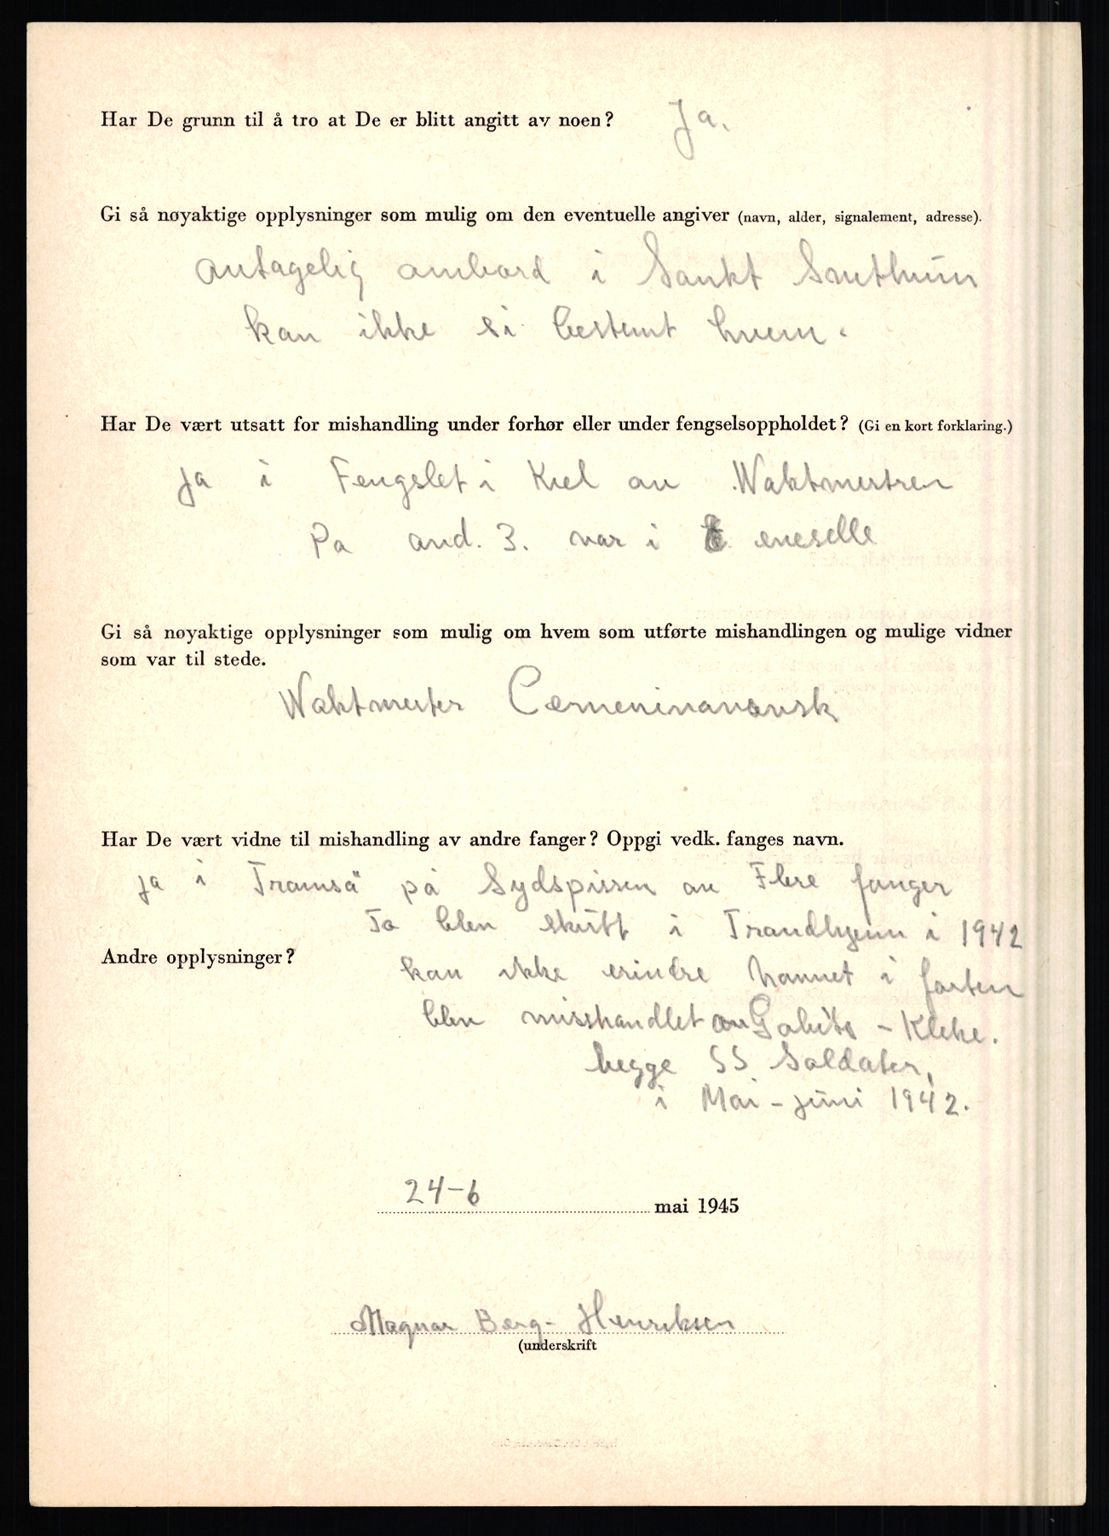 Har De grunn til å tro at De er blitt angitt av noen? Ja.
Gi så nøyaktige opplysninger som mulig om den eventuelle angiver (navn, alder, signalement, adresse).
antagelig ombord i Sankt Smthun
kan ikke si bestemt hvem.
Har De vært utsatt for mishandling under forhør eller under fengselsoppholdet? (Gi en kort forklaring.)
Ja i Fengslet i Kiel av Waktmestren
Pa avd. 3. var i eneselle
Gi så nøyaktige opplysninger som mulig om hvem som utførte mishandlingen og mulige vidner
som var til stede.
Waktmester
Har De vært vidne til mishandling av andre fanger? Oppgi vedk. fanges navn.
ja i Tromsö på Sydspissen av Flere fanger
To blev skutt i Trondhjem i 1942
Andre opplysninger?
kan ikke erindre navnet i farten
blev misshandlet av - Kleke.
begge SS Soldater,
i Mai - juni 1942.
24-6 mai 1945
Magnar Berg-Henriksen
(underskrift